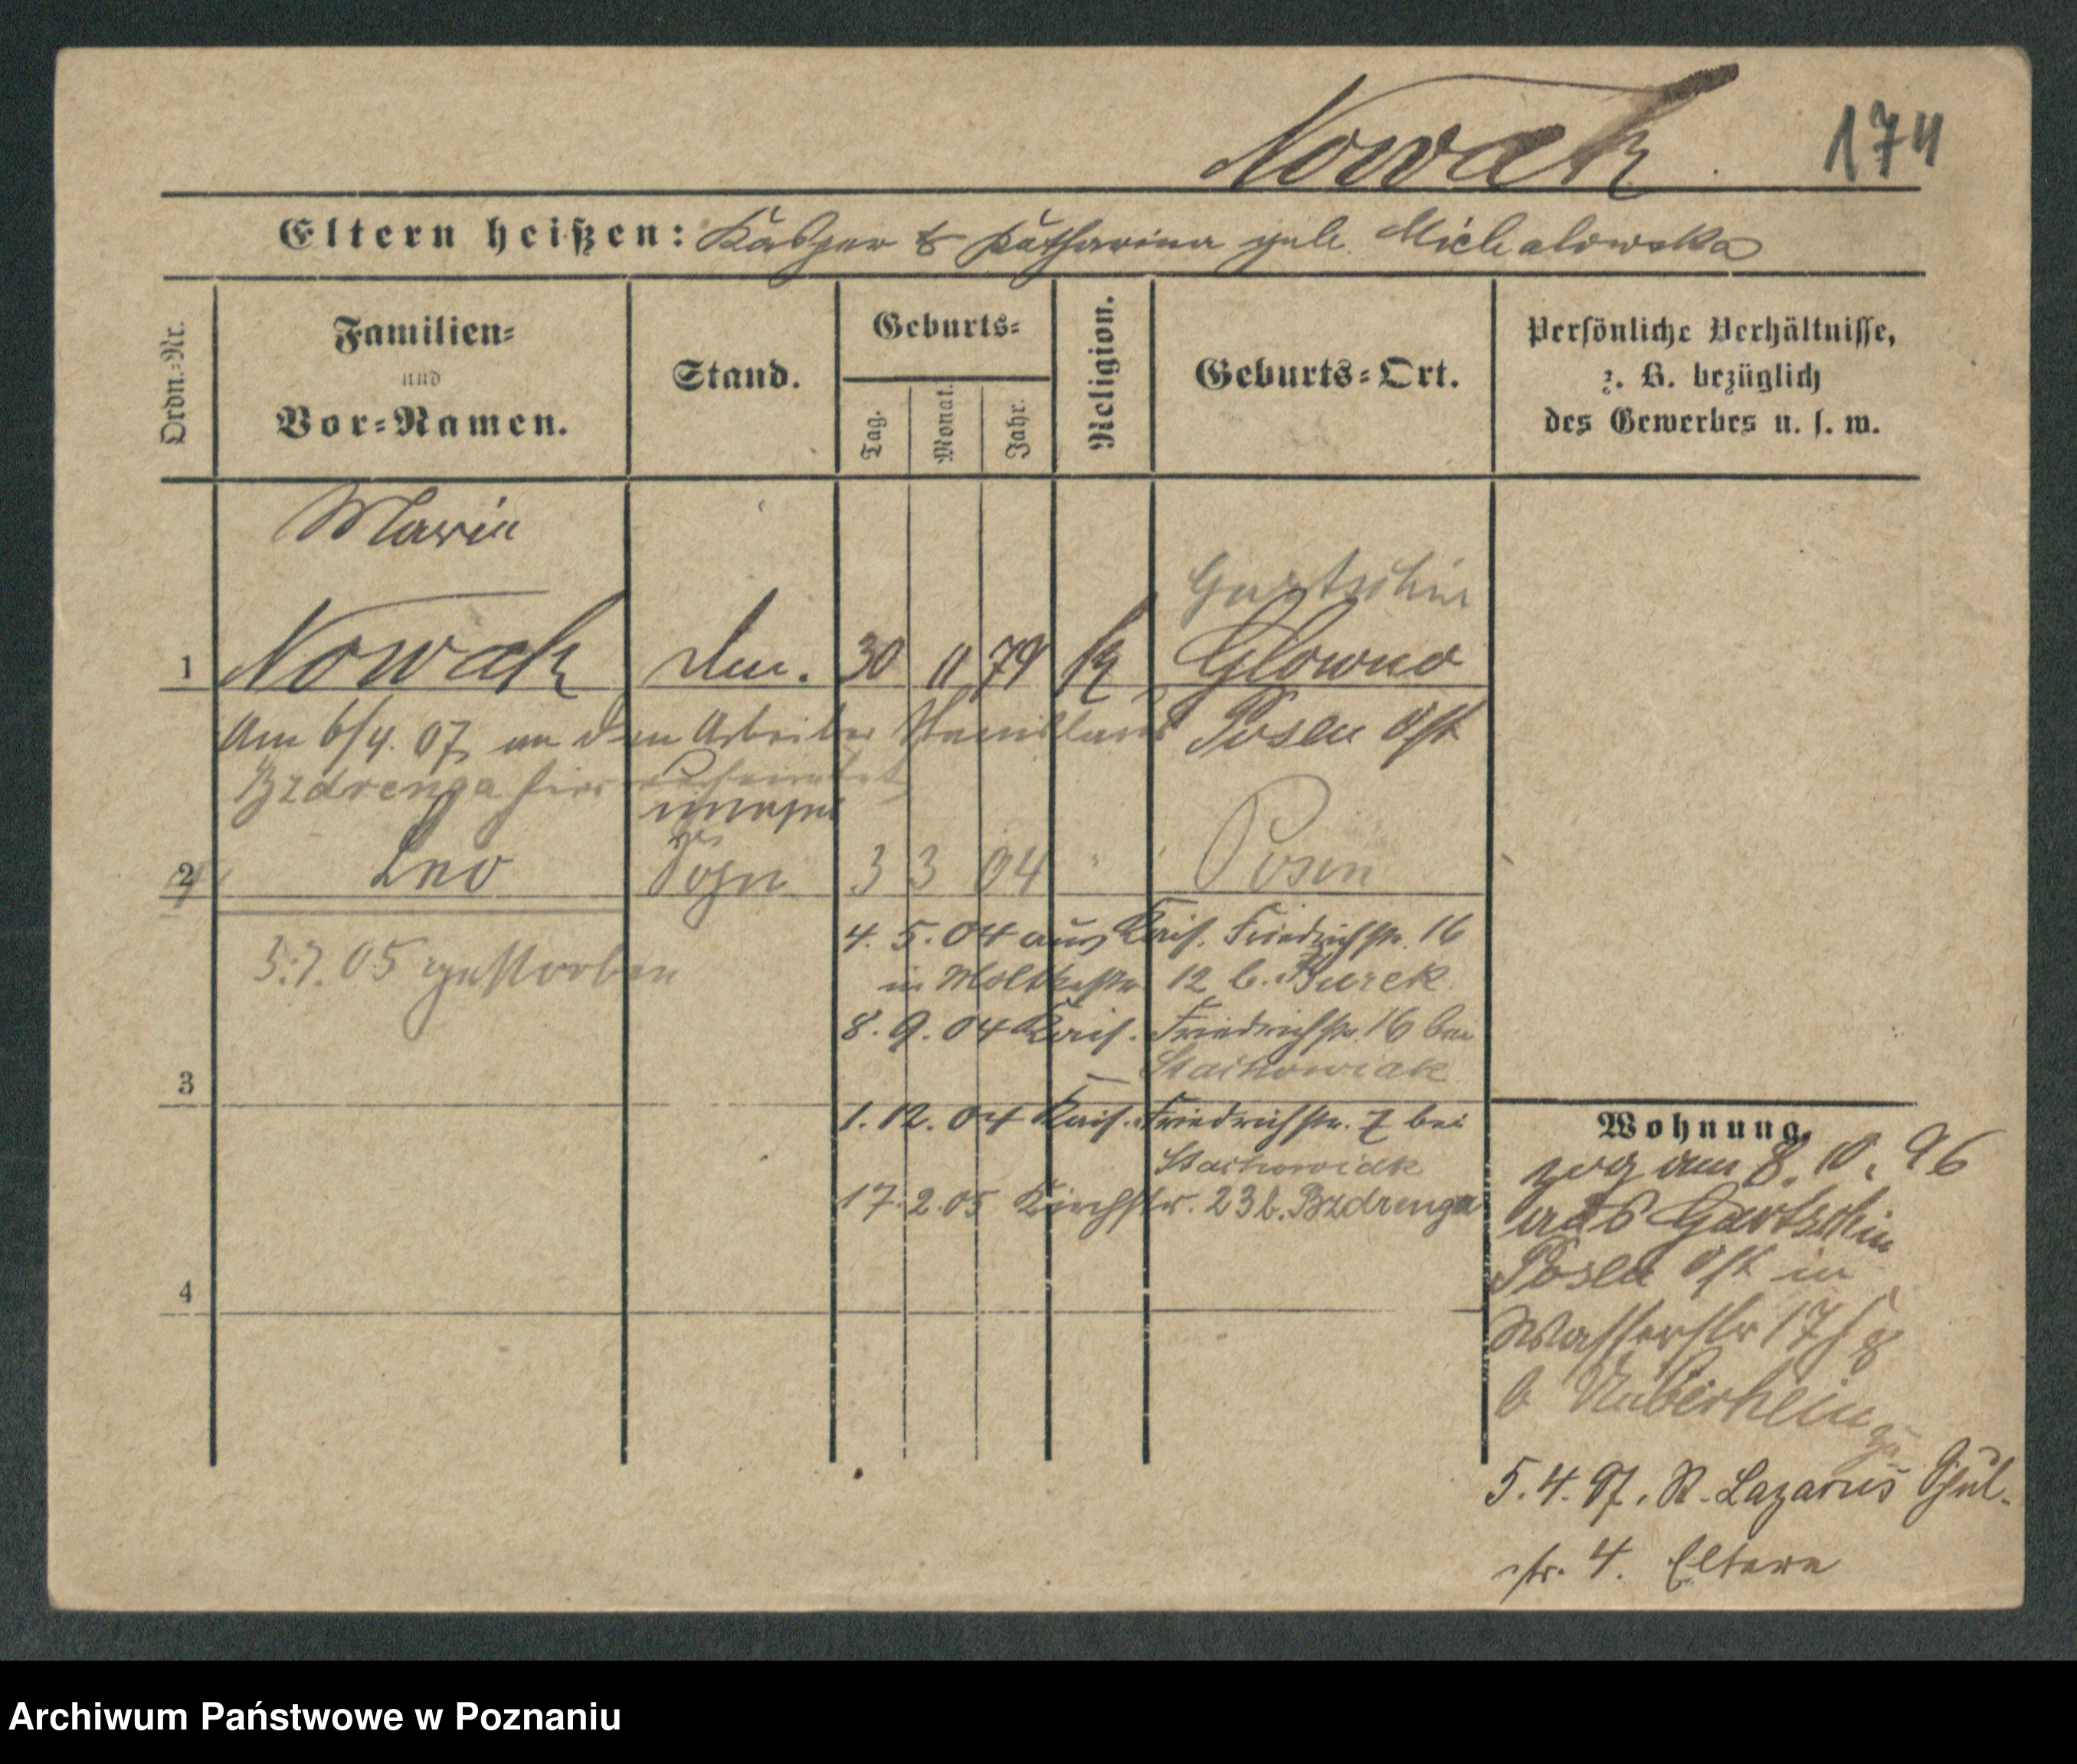 Nowak 174
Eltern heißen: Kasper & Katharina geb. Michalowska
Ordn.=Nr.
Familien=
und
Vor=Namen.
Stand.
Geburts=
Tag.
Monat.
Jahr.
Religion.
Geburts=Ort.
Persönliche Verhältnisse,
z. B. bezüglich
des Gewerbes u. s. w.
Maria
Gartschin
1 Nowak 30 11 79 k Glowno
Am 6/4. 07 an den Arbeiter Stanislaus
Posen Ost
Bzdrenga hier verheiratet
unehel
2 Leo Sohn 3 3 04 " Posen
3.7.05 gestorben
4. 5. 04 aus Kais. Friedrichstr. 16
in Moltkestr. 12 b. Burek
8. 9. 04 Kais. Friedrichstr. 16 bei
Stachowiak
3
1. 12. 04 Kais. Friedrichstr. 7 bei
Stachowiak
17. 2. 05 Kirchstr. 23 b. Bzdrenga
4
Wohnung.
zog am 8. 10. 96
aus Gartschin
Posen Ost in
Wasserstr 17/8
b
zu
5. 4. 97. St. Lazarus
str. 4. Eltern
Archiwum Państwowe w Poznaniu